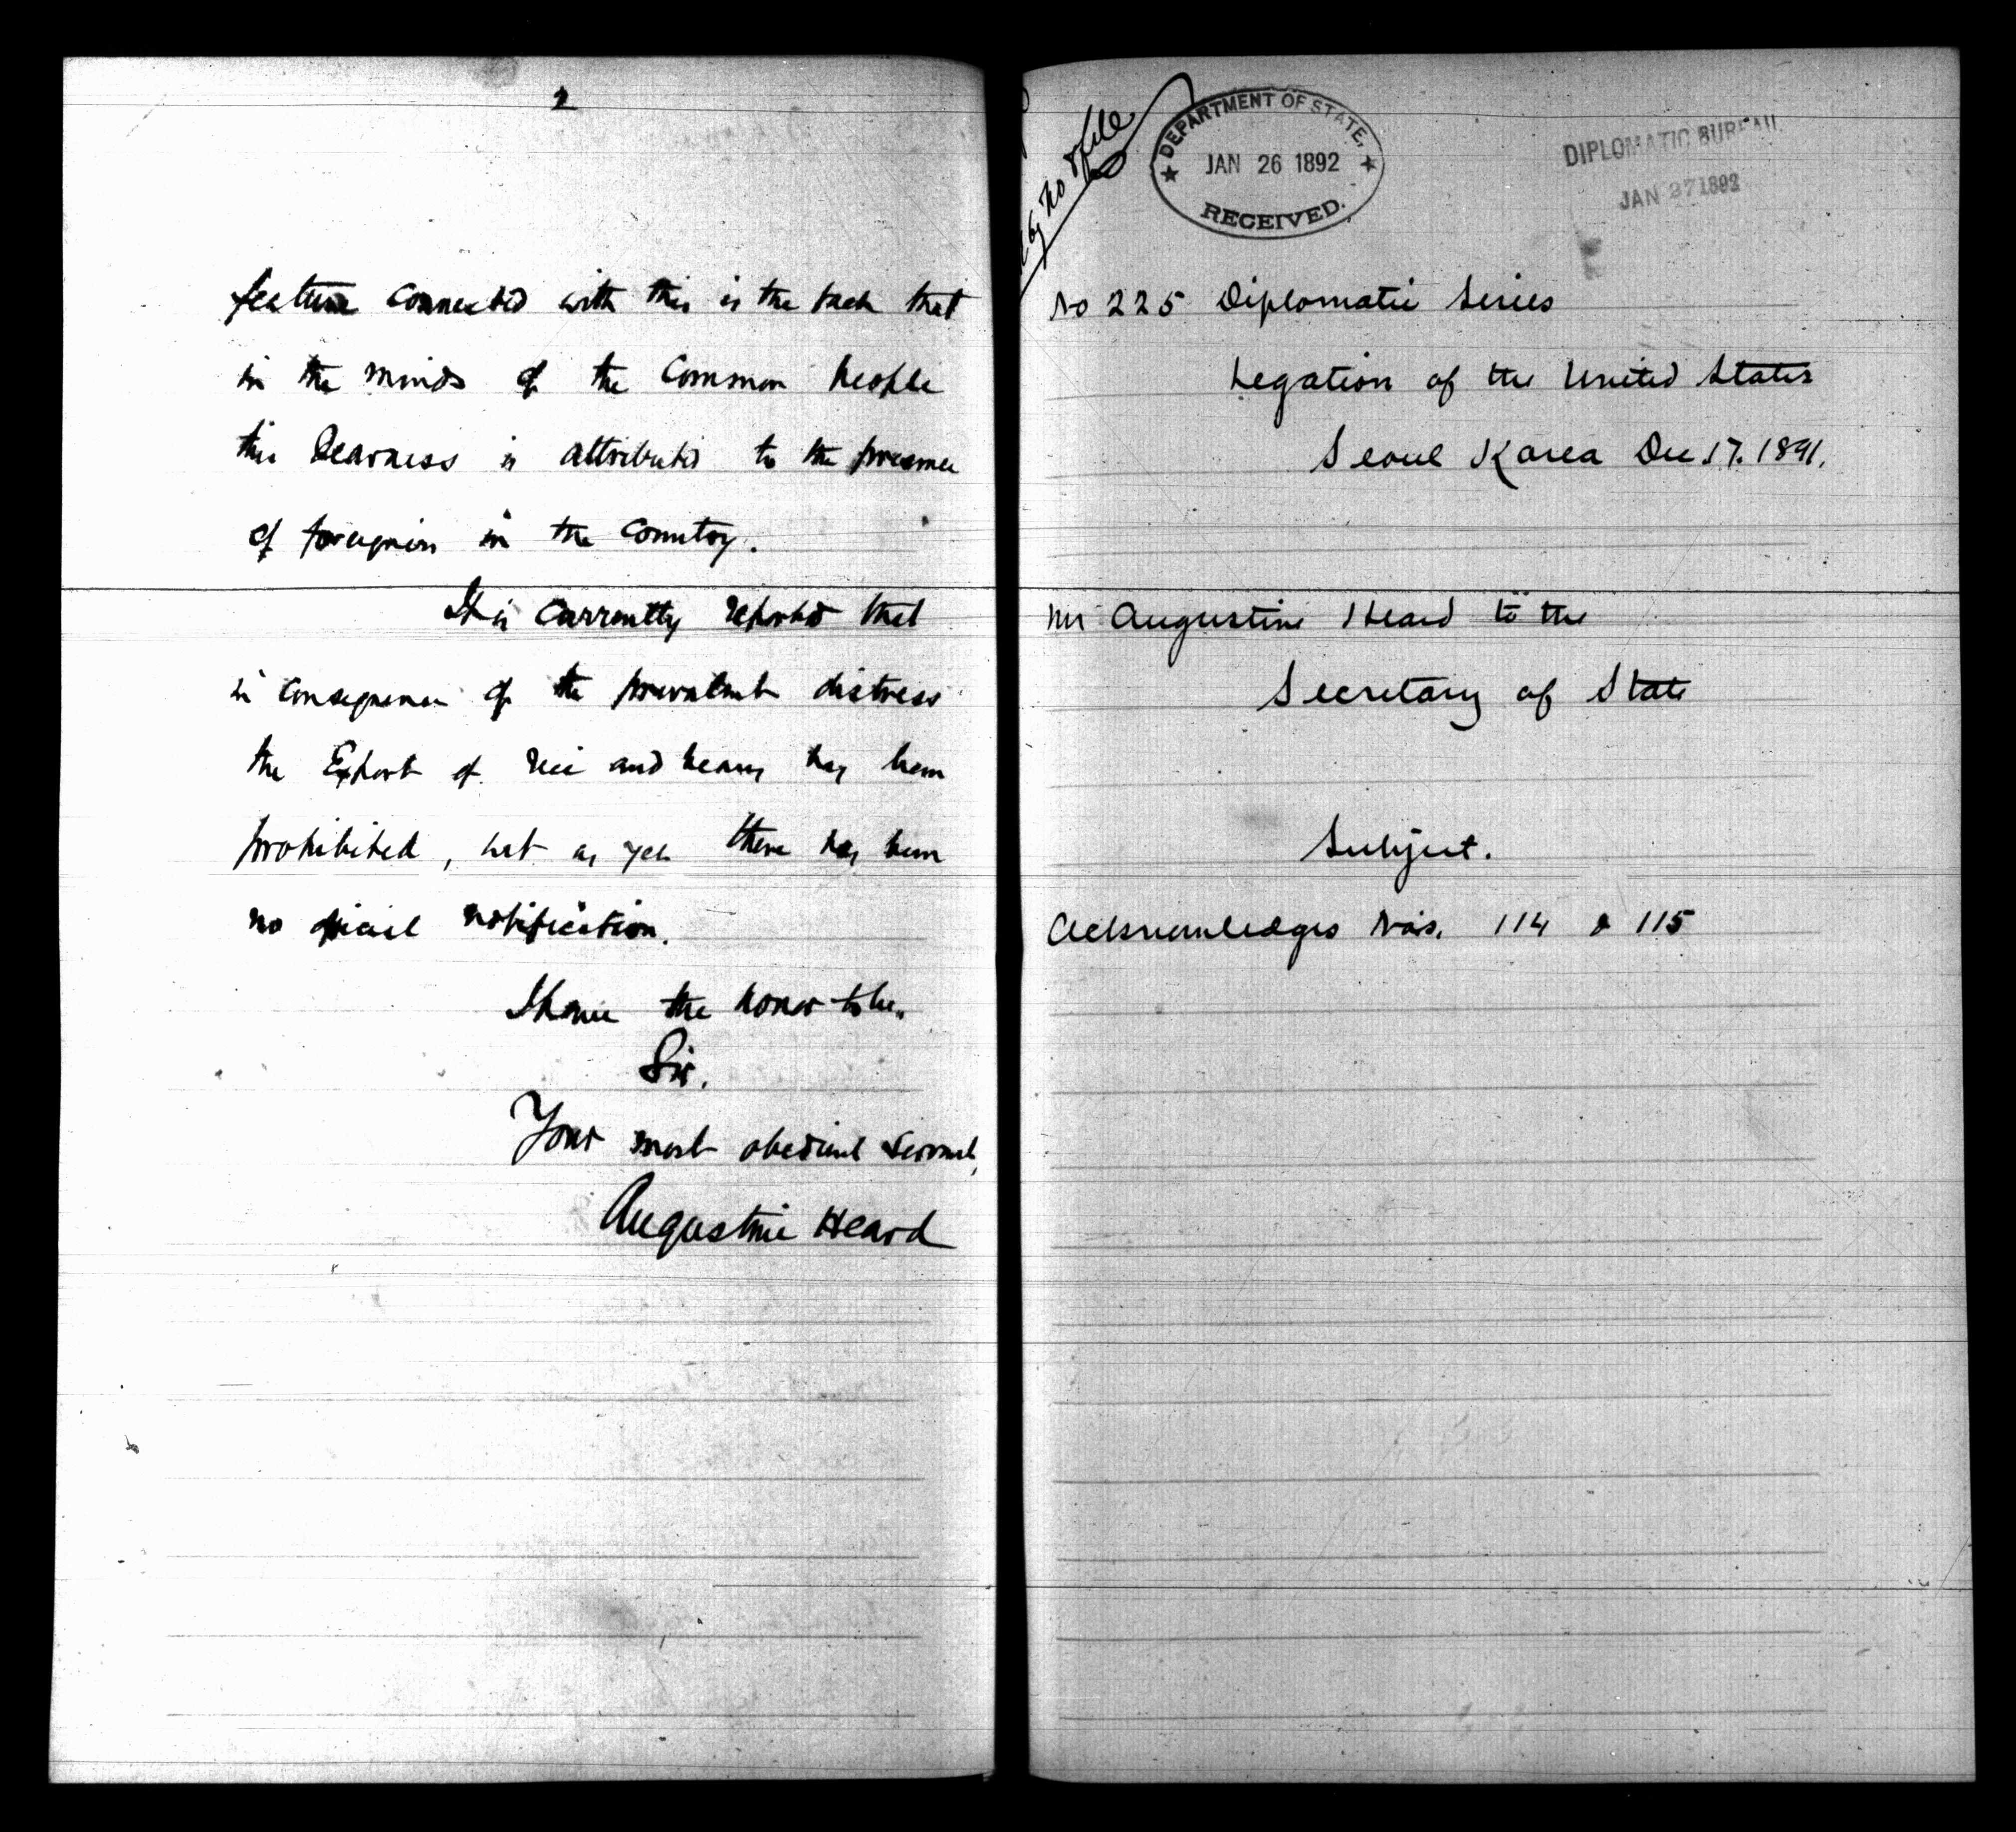 2
feature connected with this is the fact that
in the minds of the common people
this dearness is attributed to the presence
of foreigners in the country.
It is currently reported that
in consequence of the prevalent distress
the Export of rice and beans has been
prohibited, but as yet there has been
no official notification.
I have the honor to be,
Sir,
Your most obedient servant,
Augustine Heard
No & file
DEPARTMENT OF STATE,
JAN 26 1892
RECEIVED.
DIPLOMATIC BUREAU
JAN 27 1892
No 225 Diplomatic Series
Legation of the United States
Seoul Korea Dec 17. 1891.
Mr Augustine Heard to the
Secretary of State
Subject.
Acknowledges Nos. 114 & 115